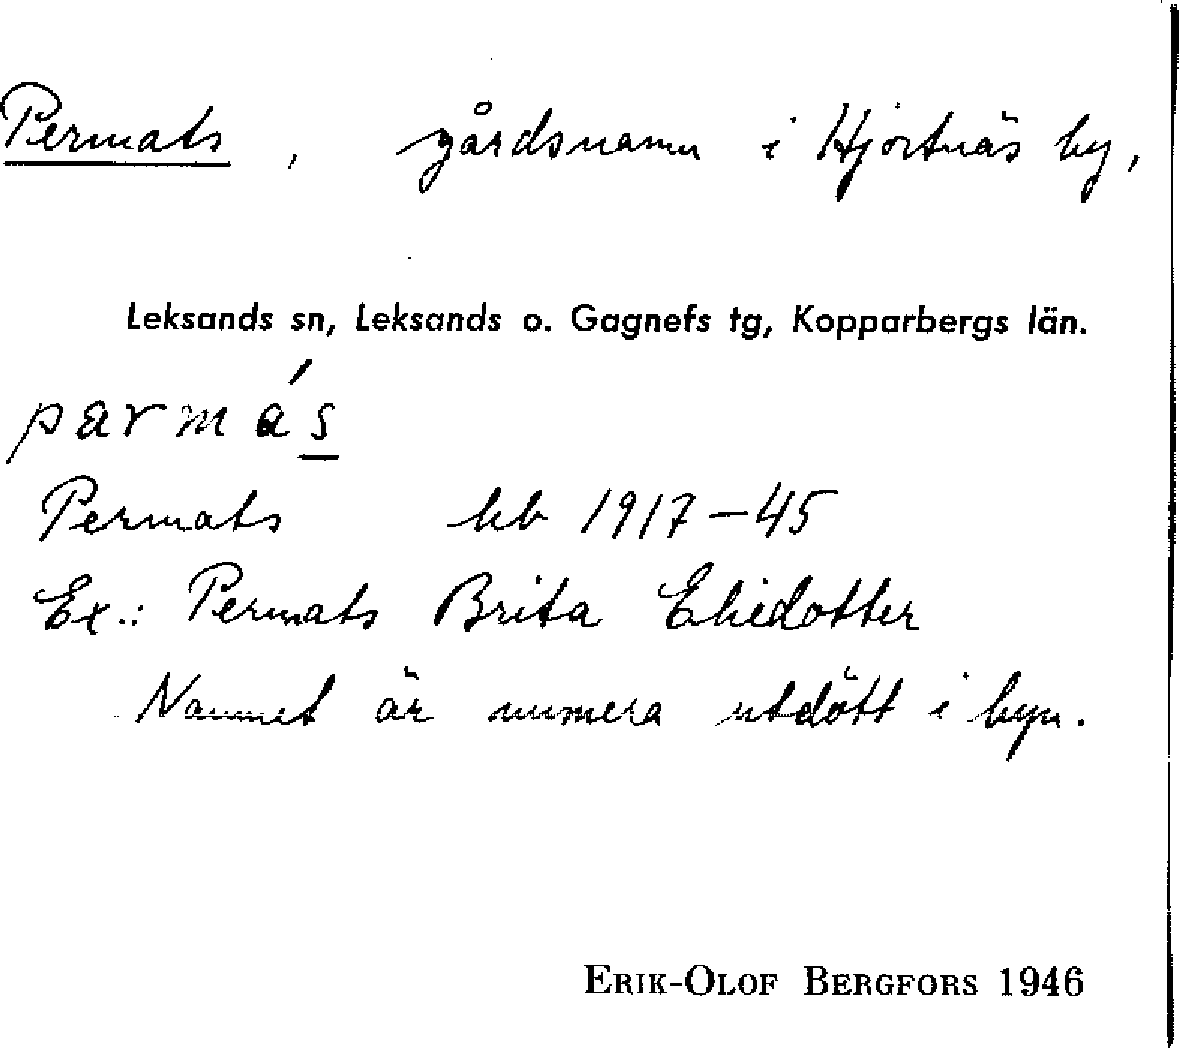 Permats, gårdsnamn i Hjortnäs by,
Leksands sn, Leksands o. Gagnefs tg, Kopparbergs län.
parmás
Permats kb 1917-45
Ex.: Permats Brita Ehedotter
Namnet är numera utdött i byn.
ERIK-OLOF BERGFORS 1946